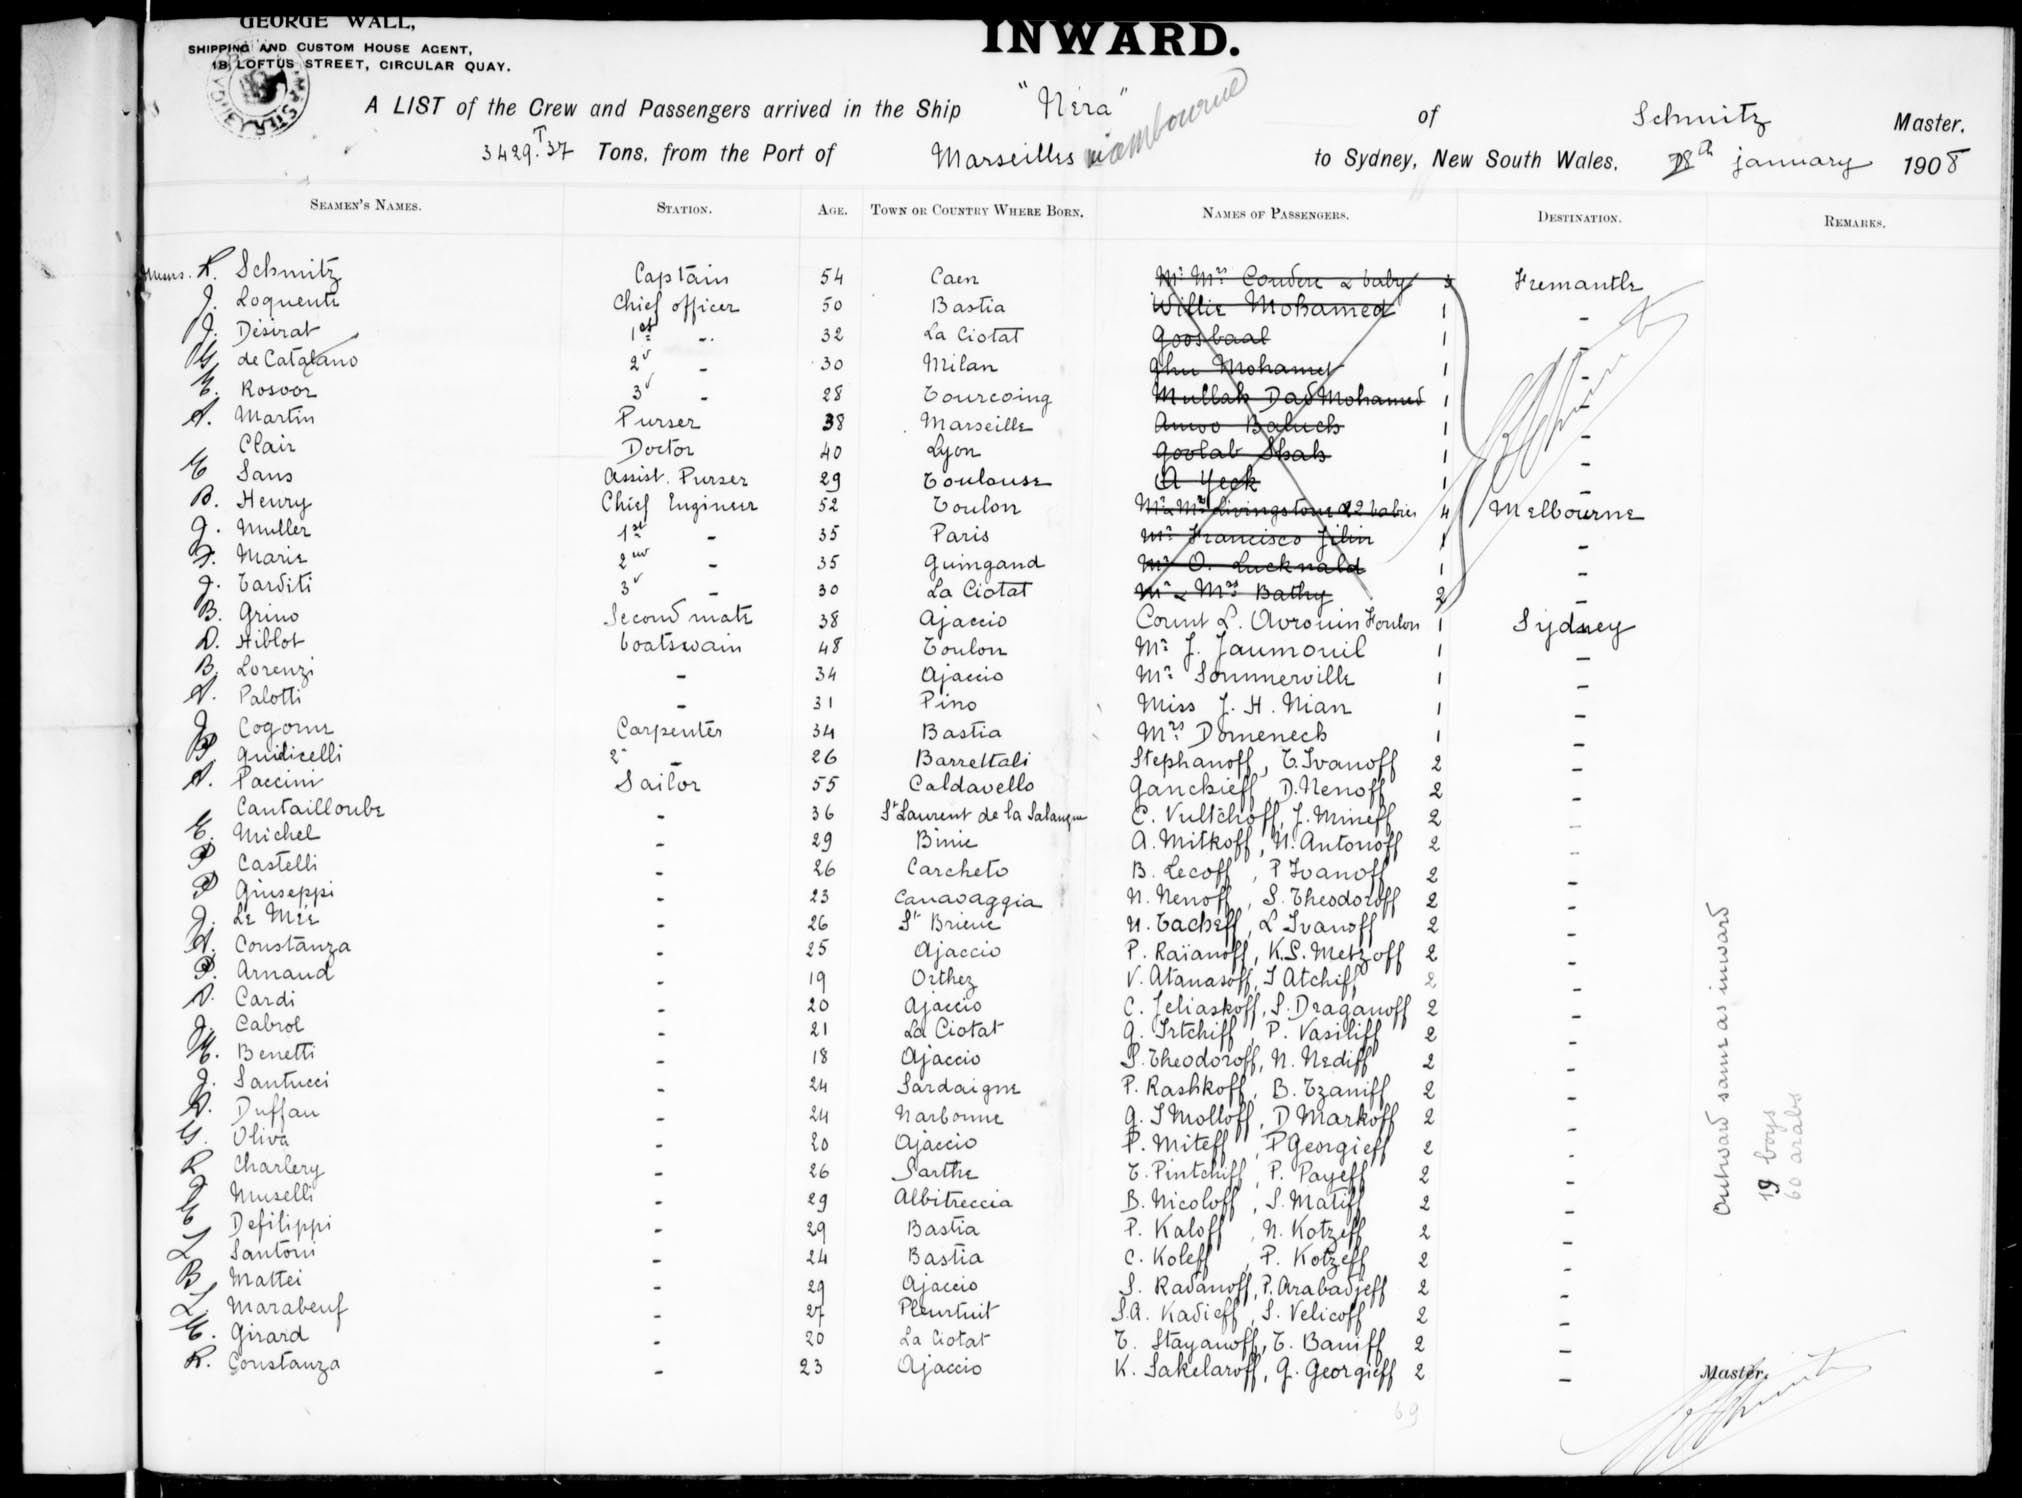 GEORGE WALL,
SHIPPING AND CUSTOM HOUSE AGENT,
LOFTUS STREET, CIRCULAR QUAY.
INWARD.
A LIST of the Crew and Passengers arrived in the Ship "Néra" of Schmitz Master.
3429.T37 Tons, from the Port of Marseilles to Sydney, New South Wales, 28th january 1908
SEAMEN'S NAMES. STATION. AGE. TOWN OR COUNTRY WHERE BORN. NAMES OF PASSENGERS. DESTINATION. REMARKS.
Schmitz Captain 54 Caen Mr Mrs Coudere & baby 3 Fremantle
J. Loquente Chief officer 50 Bastia Willie Mohamed 1 -
J. Désirat 1er - 32 La Ciotat Goosbaal 1 -
de Catalano 2d - 30 Milan Mohamet 1 -
E. Rosoor 3d - 28 Tourcoing Mullah Dad Mohamed 1 -
A. Martin Purser 38 Marseille Baluch 1 -
Clair Doctor 40 Lyon Goolab Shah 1 -
E Sans Assist. Purser 29 Toulouse A Yeck 1 -
B. Henry Chief Engineer 52 Toulon Mr & Mrs Livingstone & 2 babies 4 Melbourne
J. Muller 1st - 35 Paris Mr Francisco Jilin 1 -
F. Marie 2nd - 35 Guingand Mr O. Lucknald 1 -
J. Tarditi 3d - 30 La Ciotat Mr & Mrs Bathy 2 -
B. Grino Second mate 38 Ajaccio Count L. Avrouin Foulon 1 Sydney
D. Hiblot boatswain 48 Toulon Mr J. Jaumouil 1 -
B. Lorenzi - 34 Ajaccio Mr Sommerville 1 -
A. Palotti - 31 Pino Miss J. H. Nian 1 -
J Cogorne Carpenter 34 Bastia Mrs Domenech 1 -
Guidicelli 2d - 26 Barrettali Stephanoff, T. Ivanoff 2 -
A. Paccini Sailor 55 Caldavello Ganchieff, D. Nenoff 2 -
Cantailloube - 36 St Laurent de la Salanque C. Vultchoff, J. Mineff 2 -
E. Michel - 29 Binic A. Mitkoff, N. Antonoff 2 -
P Castelli - 26 Carcheto B. Lecoff, P Ivanoff 2 -
P Giuseppi - 23 Canavaggia N. Nenoff, S. Theodoroff 2 -
J. Le Mée - 26 St Brieuc N. Tacheff, L Ivanoff 2 -
A. Constanza - 25 Ajaccio P. Raïanoff, K.S. Metzoff 2 -
P. Arnaud - 19 Orthez V. Atanasoff, I Atchiff 2 -
D. Cardi - 20 Ajaccio C. Jeliaskoff, S. Draganoff 2 -
J. Cabrol - 21 La Ciotat G. Irtchiff, P. Vasiliff 2 -
M. Benetti - 18 Ajaccio S. Theodoroff, N. Nediff 2 -
J. Santucci - 24 Sardaigne P. Rashkoff, B. Tzaniff 2 -
D. Duffau - 24 Narbonne G. I Molloff, D Markoff 2 -
G. Oliva - 20 Ajaccio P. Miteff, P Georgieff 2 -
R Charlery - 26 Sarthe T. Pintchiff, P. Payeff 2 -
J Muselli - 29 Albitreccia B. Nicoloff, S. Matiff 2 -
Defilippi - 29 Bastia P. Kaloff, N. Kotzeff 2 -
Santoni - 24 Bastia C. Koleff, P. Kotzeff 2 -
B Mattei - 29 Ajaccio S. Radanoff, P. Arabadjeff 2 -
Marabeuf - 27 Pleurtuit S.A. Kadieff, S. Velicoff 2 -
M. Girard - 20 La Ciotat T. Stayanoff, T. Baniff 2 -
R. Constanza - 23 Ajaccio K. Sakelaroff, G. Georgieff 2 -
69
Outward same as inward
19 boys
60 arabs
Master.